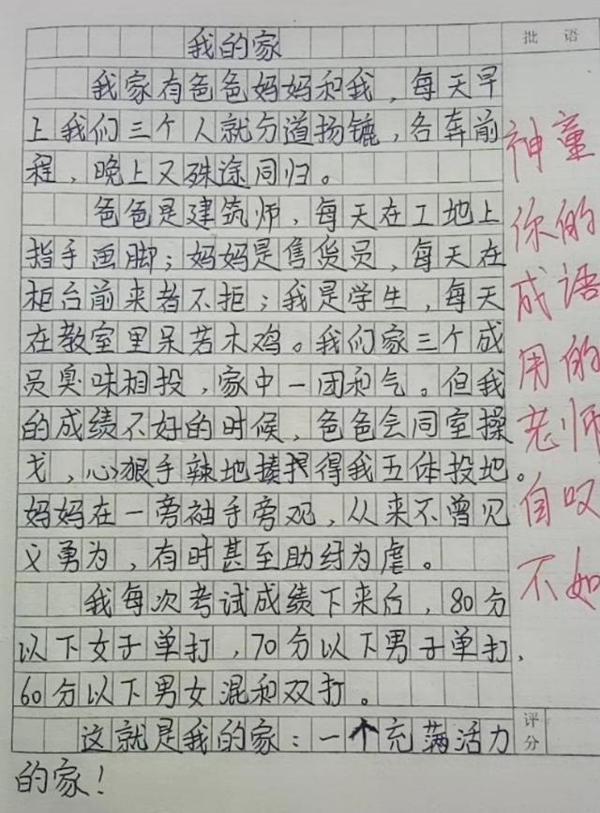 我的家
批语
我家有爸爸妈妈和我，每天早
上我们三个人就分道扬镳，各奔前
程，晚上又殊途同归。
爸爸是建筑师，每天在工地上
指手画脚；妈妈是售货员，每天在
柜台前来者不拒；我是学生，每天
在教室里呆若木鸡。我们家三个成
员臭味相投，家中一团和气。但我
的成绩不好的时候，爸爸会同室操
戈，心狠手辣地揍得我五体投地。
妈妈在一旁袖手旁观，从来不曾见
义勇为，有时甚至助纣为虐。
我每次考试成绩下来后，80分
以下女子单打，70分以下男子单打，
60分以下男女混和双打。
这就是我的家：一个充满活力
的家！
神童
你的
成语
用的
老师
自叹
不如
评
分